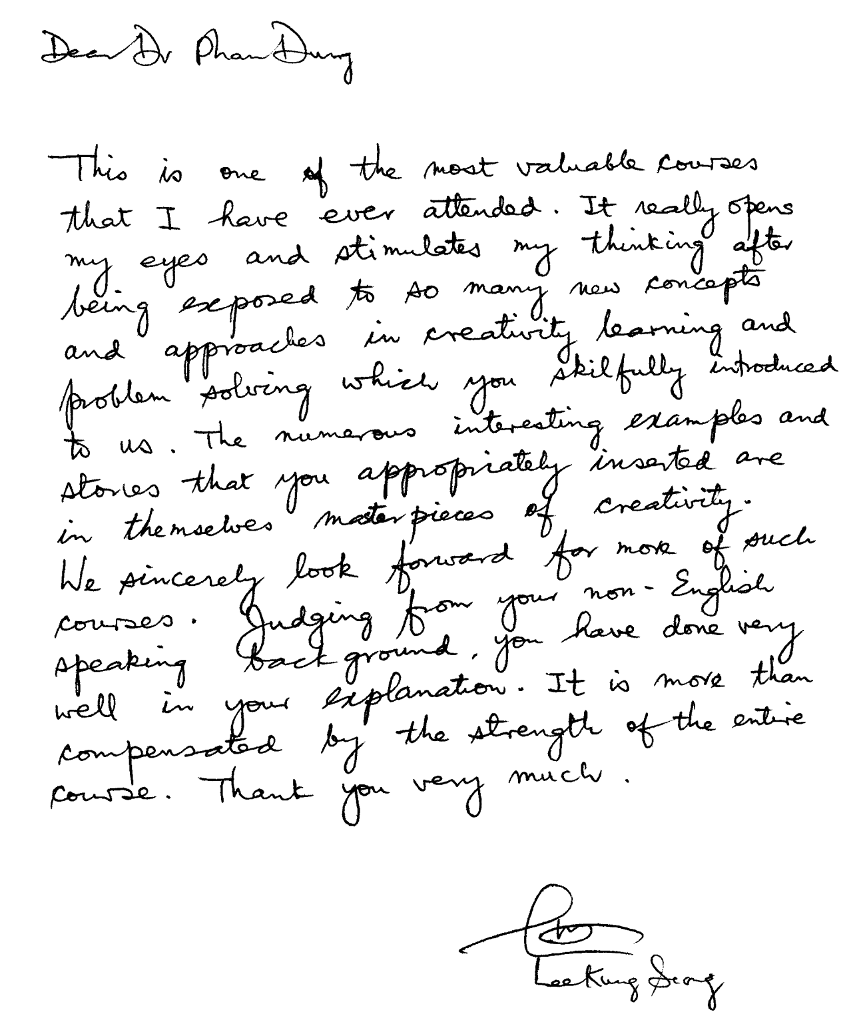 Dear Dr Phan Dung
This is one of the most valuable courses
that I have ever attended. It really opens
my eyes and stimulates my thinking after
being exposed to so many new concepts
and approaches in creativity learning and
problem solving which you skilfully introduced
to us. The numerous interesting examples and
stories that you appropriately inserted are
in themselves masterpieces of creativity.
We sincerely look forward for more of such
courses. Judging from your non-English
speaking background, you have done very
well in your explanation. It is more than
compensated by the strength of the entire
course. Thank you very much.
Lee Kung Seong